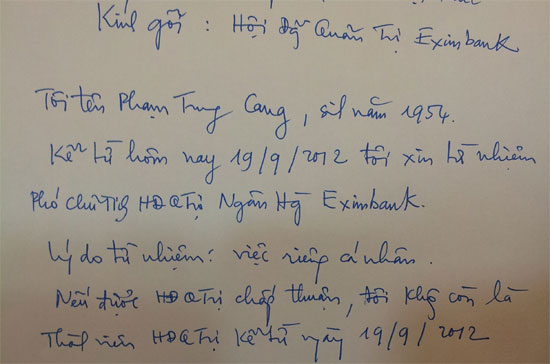 Kính gởi : Hội đg Quản Trị Eximbank
Tôi tên Phạm Trung Cang, sil năm 1954.
Kể từ hôm nay 19/9/2012 tôi xin từ nhiệm
Phó Chủ Tịch HĐQTrị Ngân Hg Eximbank.
Lý do từ nhiệm: việc riêng cá nhân.
Nếu được HĐQTrị chấp thuận, tôi khg còn là
Thàh viên HĐQTrị kể từ ngày 19/9/2012